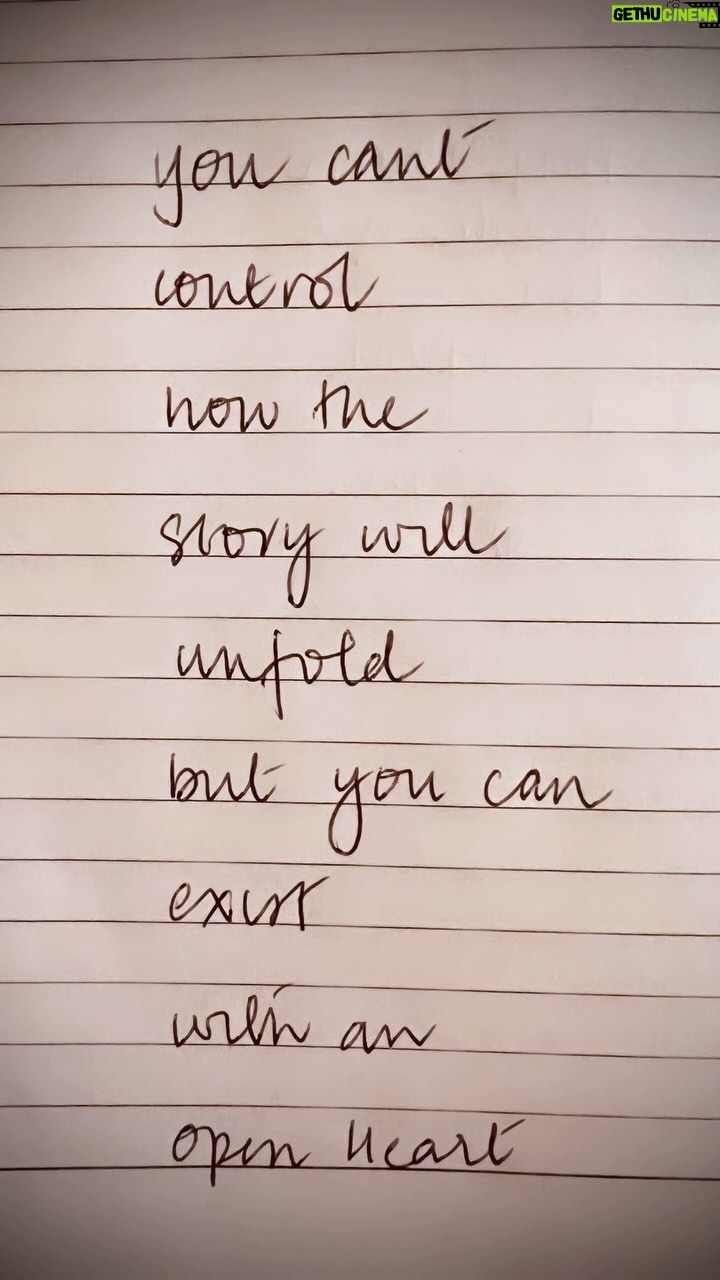 GETHUCINEMA
you cant
control
how the
story will
unfold
but you can
exist
with an
open Heart